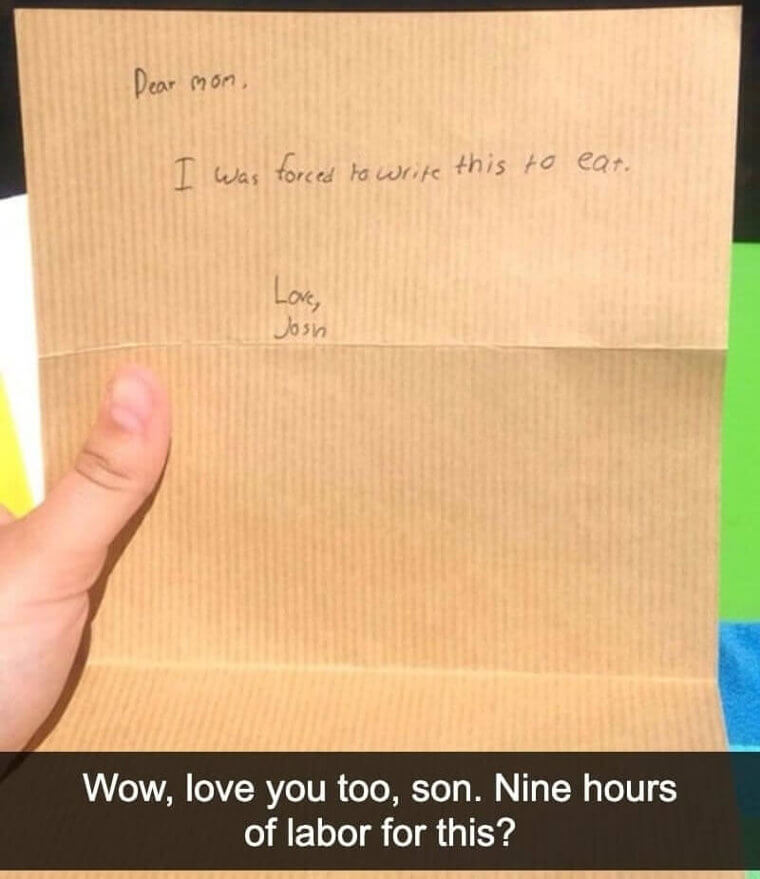 Dear mom,
I was forced to write this to eat.
Love,
Josh
Wow, love you too, son. Nine hours
of labor for this?